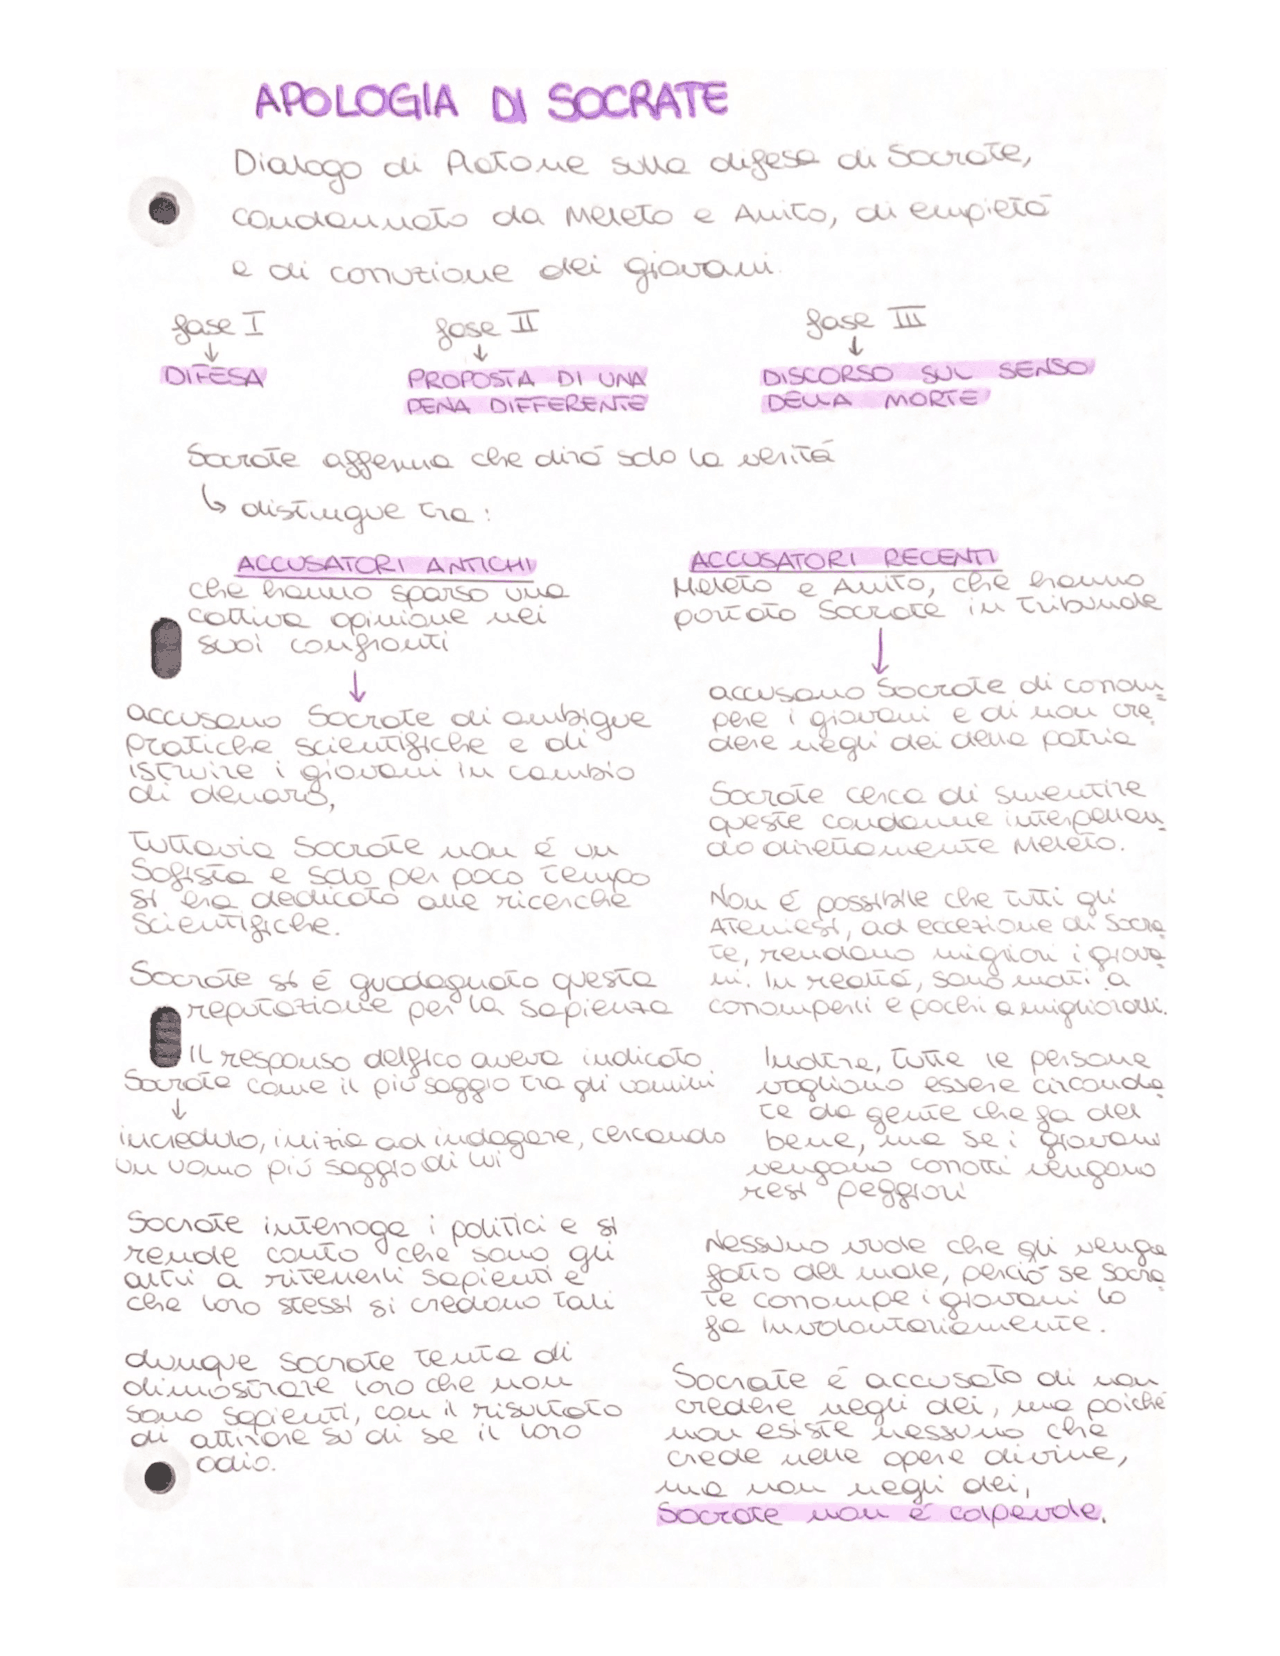 APOLOGIA DI SOCRATE
Dialogo di Platone sulla difesa di Socrate,
condannato da Meleto e Anito, di empietá
e di corruzione dei giovani.
fase I
↓
DIFESA
fase II
↓
PROPOSTA DI UNA
PENA DIFFERENTE
fase III
↓
DISCORSO SUL SENSO
DELLA MORTE
Socrate afferma che dirá solo la veritá
↳ distingue tra:
ACCUSATORI ANTICHI
che hanno sparso una
cattiva opinione nei
suoi confronti
↓
accusano Socrate di ambigue
pratiche scientifiche e di
istruire i giovani in cambio
di denaro,
Tuttavia Socrate non é un
Sofista e solo per poco tempo
si era dedicato alle ricerche
scientifiche.
Socrate si é guadagnato questa
reputazione per la sapienza
Il responso delfico aveva indicato
Socrate come il piú saggio tra gli uomini
↓
incredulo, inizia ad indagare, cercando
un uomo piú saggio di lui
Socrate interroga i politici e si
rende conto che sono gli
altri a ritenerli sapienti e
che loro stessi si credono tali
dunque Socrate tenta di
dimostrare loro che non
sono sapienti, con il risultato
di attirare su di se il loro
odio.
ACCUSATORI RECENTI
Meleto e Anito, che hanno
portato Socrate in tribunale
↓
accusano Socrate di corrom-
pere i giovani e di non cre-
dere negli dei della patria
Socrate cerca di smentire
queste condanne interpellan-
do direttamente Meleto.
Non é possibile che tutti gli
Ateniesi, ad eccezione di Socra-
te, rendano migliori i giova-
ni. In realtá, sono molti a
corromperli e pochi a migliorarli.
Inoltre, tutte le persone
vogliono essere circonda-
te da gente che fa del
bene, ma se i giovani
vengono corrotti vengono
resi peggiori
Nessuno vuole che gli venga
fatto del male, perció se Socra-
te corrompe i giovani lo
fa involontariamente.
Socrate é accusato di non
credere negli dei, ma poiché
non esiste nessuno che
crede nelle opere divine,
ma non negli dei,
Socrate non é colpevole.